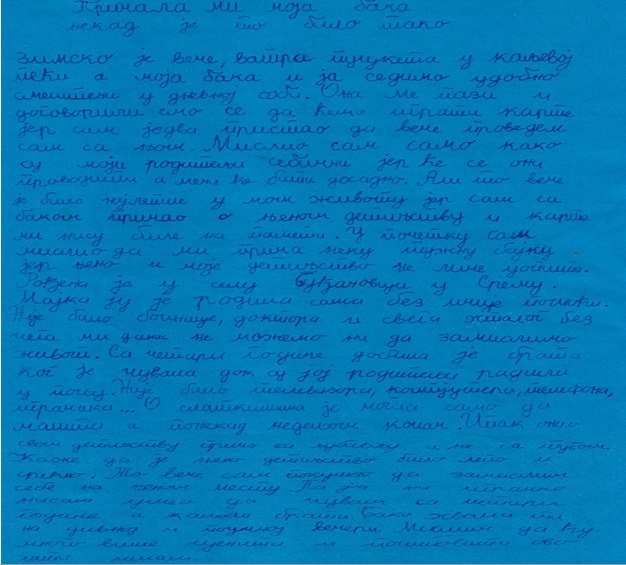 Причала ми моја бака
некад је то било тако
Зимско је вече, ватра пуцкета у каљевој
пећи а моја бака и ја седимо удобно
смештени у дневној соби. Она ме пази и
договорили смо се да ћемо играти карте
јер сам једва пристао да вече проведем
сам са њом. Мислио сам само како
су моји родитељи себични јер ће се они
проводити а мени ће бити досадно. Али то вече
је било најлепше у мом животу јер сам са
баком причао о њеном детињству и карте
ми нису биле на памети. У почетку сам
мислио да ми прича неку тужну бајку
јер њено и моје детињство не личе уопште.
Рођена је у селу Буђановци у Срему.
Мајка ју је родила сама без ичије помоћи.
Није било болнице, доктора и свега осталог без
чега ми данас не можемо ни да замислимо
живот. Са четири године добила је брата
ког је чувала док су јој родитељи радили
у пољу. Није било телевизора, компјутера, телефона,
играчака... О слаткишима је могла само да
машта а понекад недељом колач. Ипак она о
свом детињству прича са љубављу а не са тугом.
Каже да је њено детињство било лепо и
срећно. То вече сам покушао да замислим
себе на њеном месту. Па ја ни играчке
нисам умео да чувам са четири
године а камоли брата. Бако хвала ти
на дивној и поучној вечери. Мислим да ћу
много више ценити и поштовати ово
што имам.